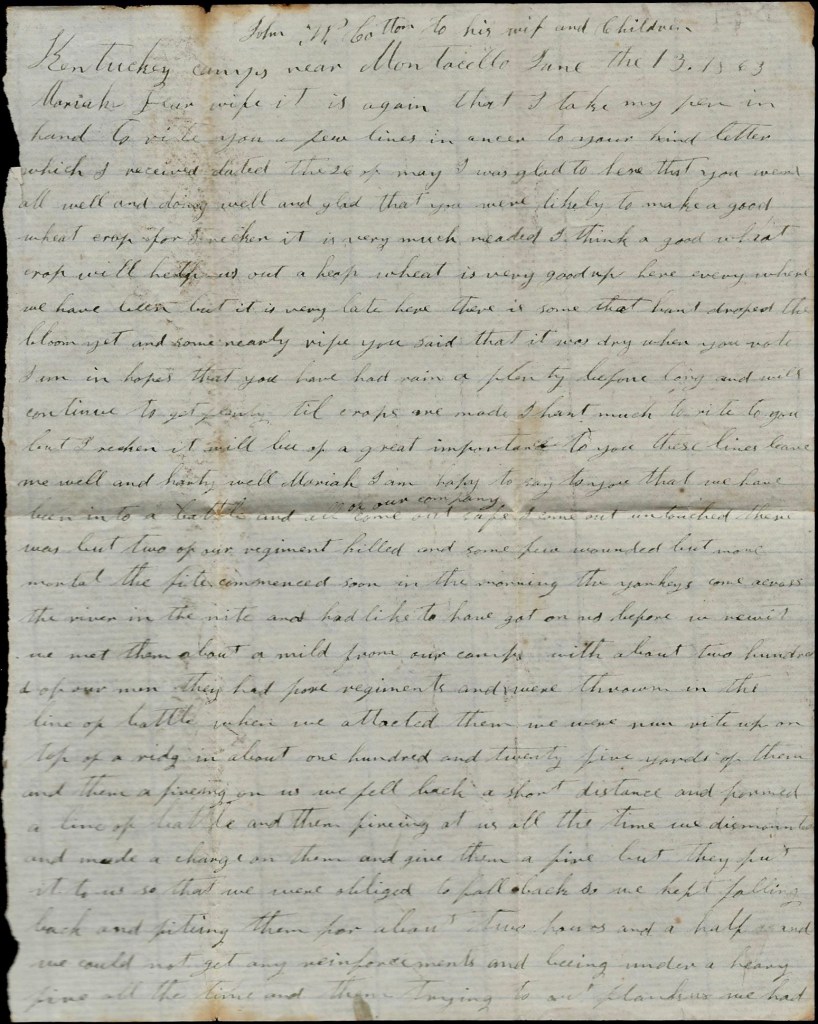 John W Cotton to his wif and Children
Kentuckey camps near Monticello June the 13. 1863
Mariah Dear wife it is again that I take my pen in
hand to rite you a few lines in ancer to your kind letter
which I received dated the 26 of may I was glad to here that you were
all well and doing well and glad that you were likely to make a good
wheat crop for I recken it is very much neaded I think a good wheat
crop will help us out a heap wheat is very good up here every where
we have been but it is very late here there is some that hant droped the
bloom yet and some nearly ripe you said that it was dry when you rote
I am in hopes that you have had rain a plenty before long and will
continue to get plenty til crops are made I hant much to rite to you
but I recken it will be of a great importance to you these lines leave
me well and harty well Mariah I am hapy to say to you that we have
been in to a battle and all of our company come out safe I come out untouched there
was but two of our regiment killed and some few wounded but none
mortal the fite commenced soon in the morning the yankeys come across
the river in the nite and had like to have got on us before we new it
we met them about a mild from our camps with about two hundred
of our men they had fore regiments and were thrown in the
line of battle when we attacted them we were run rite up on
top of a ridg in about one hundred and twenty five yards of them
and them a fireing on us we fell back a short distance and formed
a line of battle and them fireing at us all the time we dismounted
and made a charge on them and give them a fire but they put
it to us so that we were obliged to fall back so we kept falling
back and fiting them for about two hours and a half and
we could not get any reinforcements and being under a heavy
fire all the time and them trying to our flanks we had